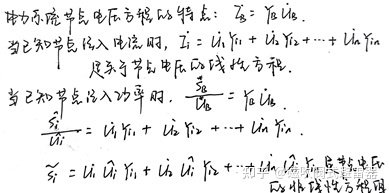 电力系统节点电压方程的特点: İ_B = Y_B U̇_B.
当已知节点注入电流时, İ_i = U̇_1 Y_i1 + U̇_2 Y_i2 + ⋯ + U̇_n Y_in
是关于节点电压的线性方程.
当已知节点注入功率时. S̊_B / Ů_B = Y_B U̇_B.
S̊_i / Ů_i = U̇_1 Y_i1 + U̇_2 Y_i2 + ⋯ + U̇_n Y_in.
S̊_i = U̇_1 Ů_i Y_i1 + U̇_2 Ů_i Y_i2 + ⋯ + U̇_n Ů_i Y_in 是节点电压
的非线性方程组
知乎